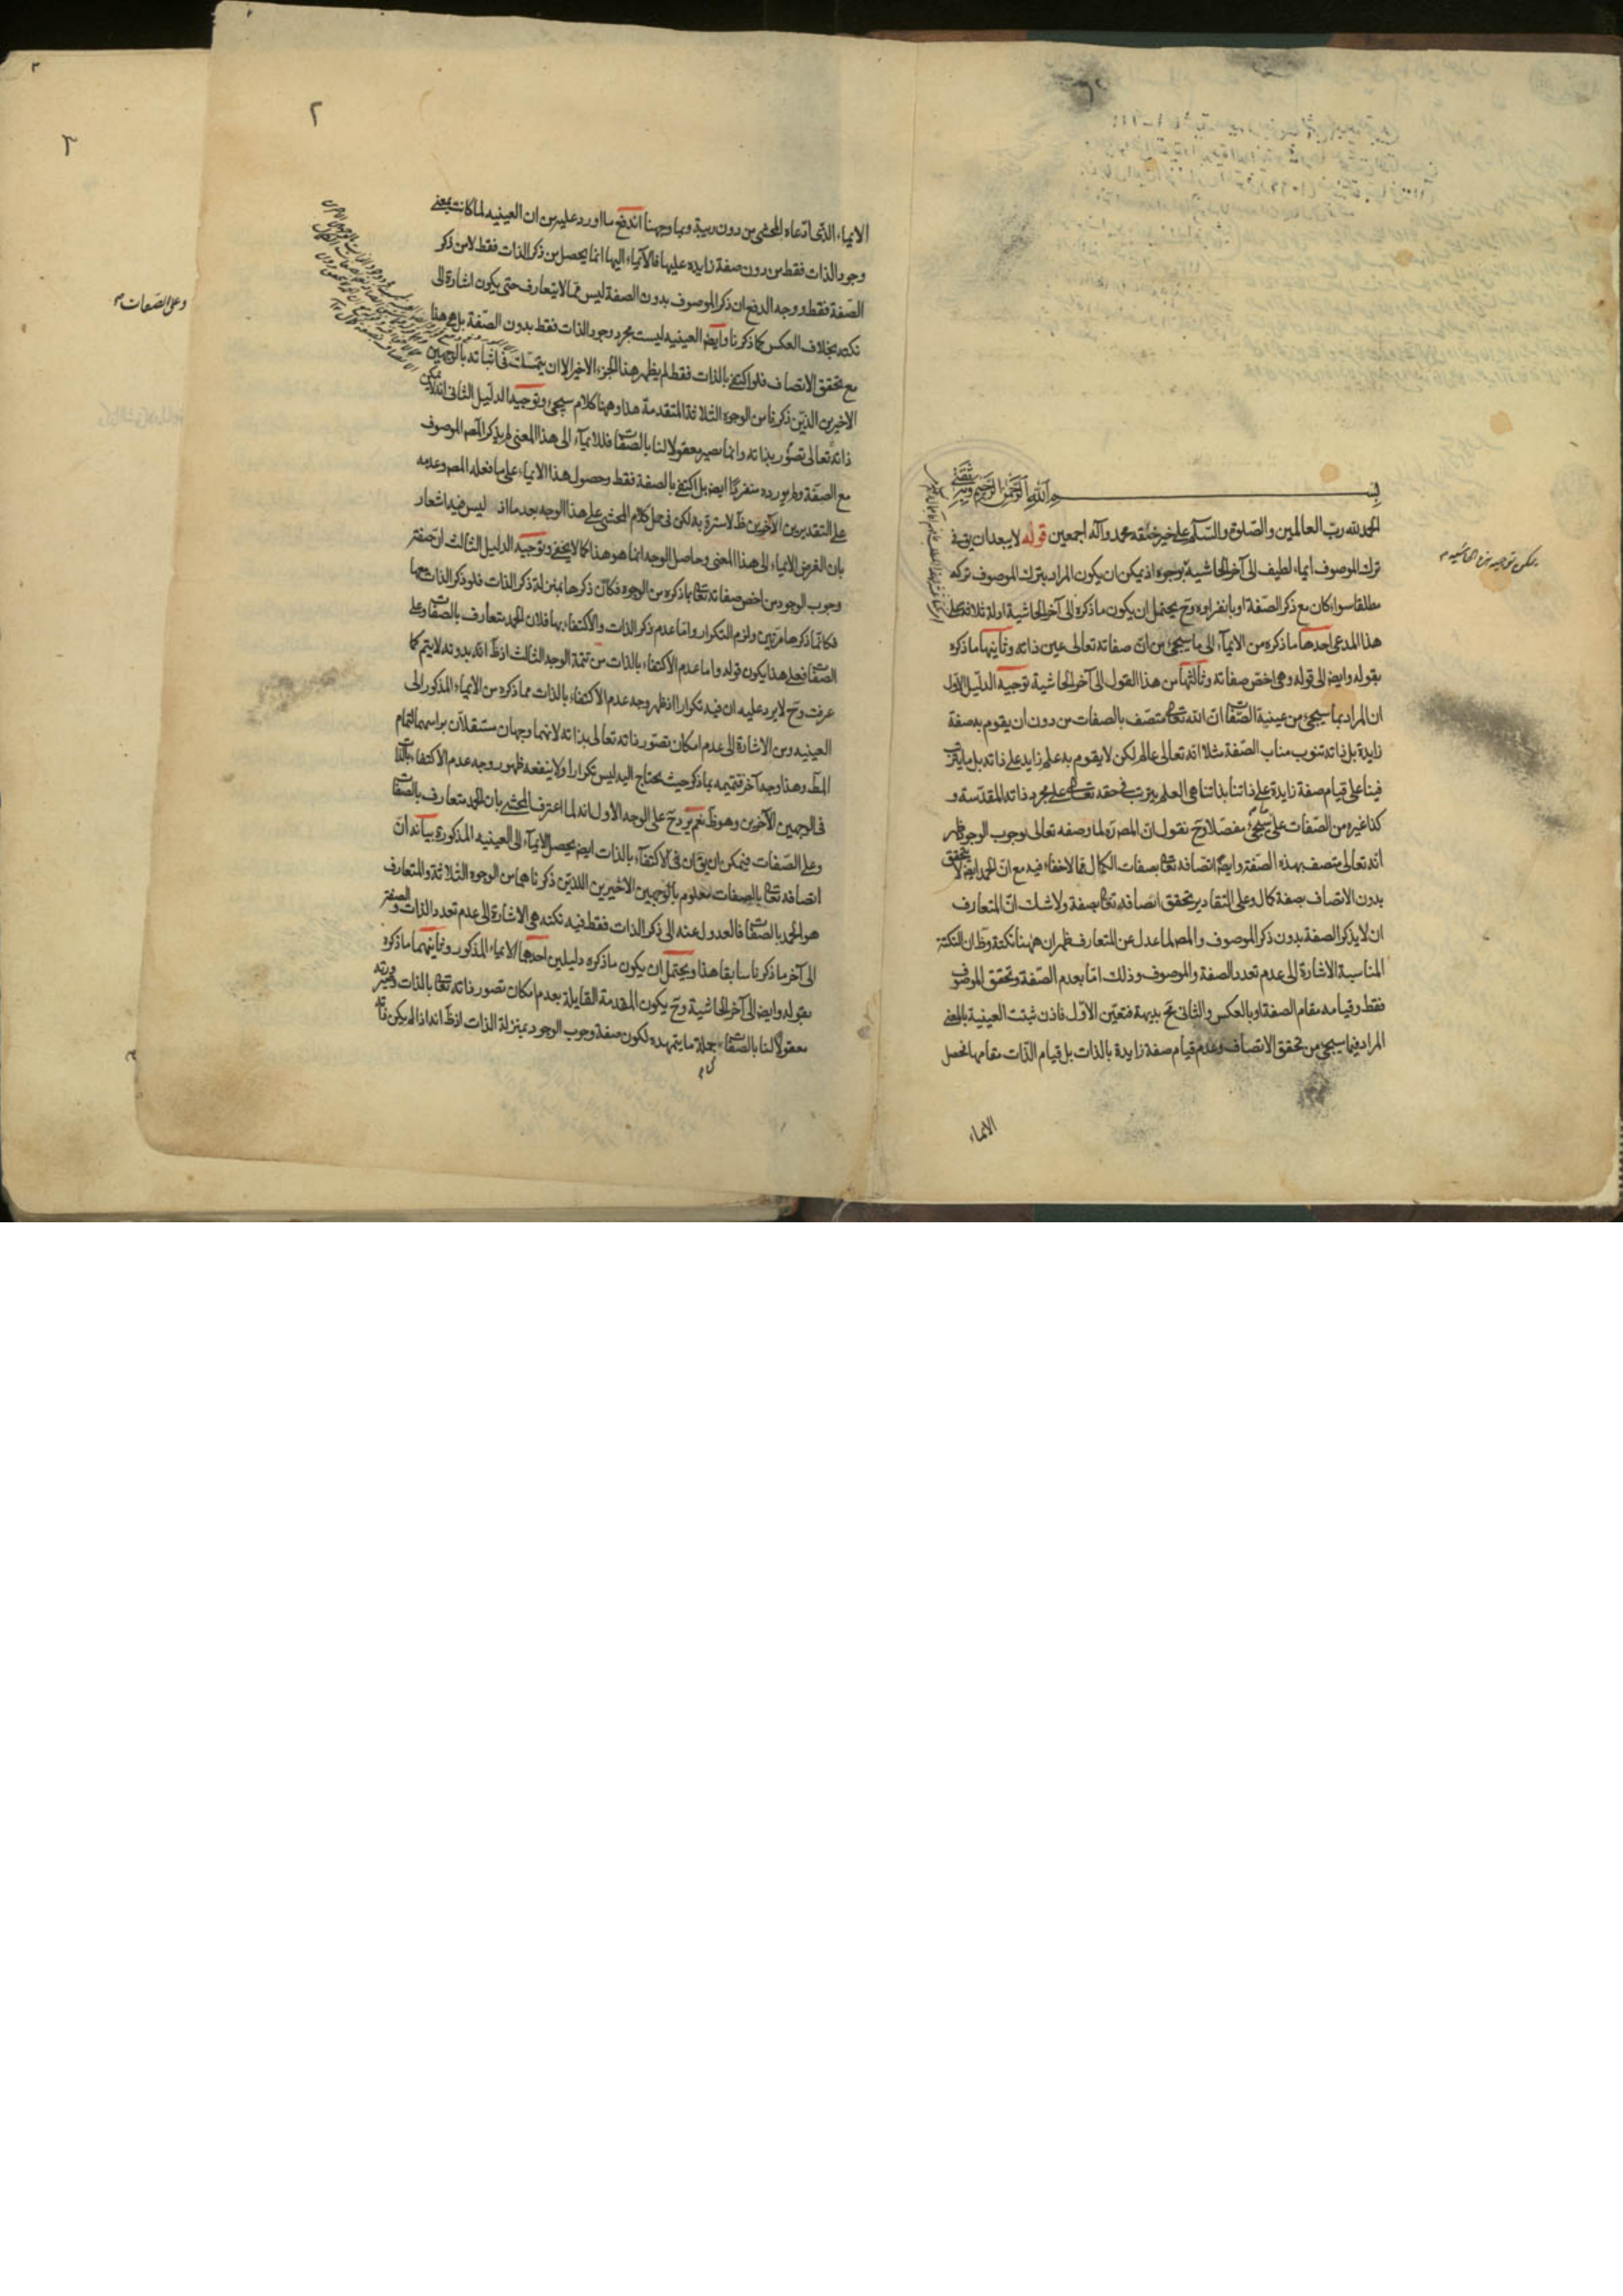 بسم الله الرحمن الرحيم وبه ثقتي
الحمد لله رب العالمين والصلوة والسلام على خير خلقه محمد وآله اجمعين قوله لا يبعد ان يق في
ترك الموصوف ايماء لطيف الى آخر الحاشية بوجوه اذ يمكن ان يكون المراد بترك الموصوف تركه
يمكن توجيه هذه الحاشية
مطلقا سواء كان مع ذكر الصفة او بانفراده وح يحتمل ان يكون ما ذكره الى آخر الحاشية ادلة ثلاثة على
هذا المدعى احدها ما ذكره من الايماء الى ما سيجئ من ان صفاته تعالى عين ذاته وثانيها ما ذكره
بقوله وايضا الى قوله وهى اخص صفاته وثالثها من هذا القول الى آخر الحاشية توجيه الدليل الاول
ان المراد بما سيجئ من عينية الصفات ان الله تعالى متصف بالصفات من دون ان يقوم به صفة
زايدة بل ذاته تنوب مناب الصفة مثلا انه تعالى عالم لكن لا يقوم به علم زايد على ذاته بل ما يترتب
فينا على قيام صفة زايدة على ذاتنا بذاتنا هى العلم يترتب في حقه تعالى على مجرد ذاته المقدسة و
كذا غيره من الصفات على ما سيجئ مفصلا وح نقول ان المصر لما وصفه تعالى بوجوب الوجود ظهر
انه تعالى متصف بهذه الصفة وايضا اتصافه تعالى بصفات الكمال مما لا خفاء فيه مع ان الحمد ايضا لا يتحقق
بدون الاتصاف بصفة كمال وعلى التقادير تحقق اتصافه تعالى بصفة ولا شك ان المتعارف
ان لا يذكر الصفة بدون ذكر الموصوف والمصر لما عدل عن المتعارف ظهر ان ههنا نكتة وظ ان النكتة
المناسبة الاشارة الى عدم تعدد الصفة والموصوف وذلك اما بعدم الصفة وتحقق الموصوف
فقط وقيامه مقام الصفة او بالعكس والثانى مح بديهة فتعين الاول فاذن ثبتت العينية بالمعنى
المراد فيما سيجئ من تحقق الاتصاف وعدم قيام صفة زايدة بالذات بل قيام الذات مقامها فحصل
الايماء
٢
٣
الايماء الذى ادعاه المحشى من دون ريبة وبما وجهنا اندفع ما اورد عليه من ان العينيه لما كانت بمعنى
وجود الذات فقط من دون صفة زايده عليها فالايماء اليها انما يحصل من ذكر الذات فقط لا من ذكر
الصفة فقط ووجه الدفع ان ذكر الموصوف بدون الصفة ليس مما لا يتعارف حتى يكون اشارة الى
نكته بخلاف العكس كما ذكرنا وايضا العينيه ليست مجرد وجود الذات فقط بدون الصفة بل مع هذا
مع تحقق الاتصاف فلو اكتفى بالذات فقط لم يظهر هذا الجزء الاخير الا ان يتمسك في اثباته بالوجهين
الاخيرين الذين ذكرنا من الوجوه الثلاثة المتقدمة هذا وههنا كلام سيجئ وتوجيه الدليل الثانى انه لا يمكن
ذاته تعالى تصور بذاته وانما يصير معقولا لنا بالصفات فللايماء الى هذا المعنى لم يذكر المصر الموصوف
مع الصفة ولم يورده منفردا ايضا بل اكتفى بالصفة فقط وحصول هذا الايماء على ما فعله المصر وعدمه
على التقديرين الآخرين ظ لا سترة به لكن في حمل كلام المحشى على هذا الوجه بعد ما اذ ليس فيه اشعار
بان الغرض الايماء الى هذا المعنى وحاصل الوجه انما هو هذا كما لا يخفى وتوجيه الدليل الثالث ان صفة
وجوب الوجود من اخص صفاته تعالى بما ذكره من الوجوه فكان ذكرها بمنزلة ذكر الذات فلو ذكر الذات معها
فكانما ذكرها مرتين ولزم التكرار واما عدم ذكر الذات والاكتفاء بها فلان الحمد متعارف بالصفات وعلى
الصفات فعلى هذا يكون قوله واما عدم الاكتفاء بالذات من تتمة الوجه الثالث اذ ظ انه بدونه لا يتم كما
عرفت وح لا يرد عليه ان فيه تكرارا اذ ظهر وجه عدم الاكتفاء بالذات مما ذكره من الايماء المذكور الى
العينيه ومن الاشارة الى عدم امكان تصور ذاته تعالى بذاته لانهما وجهان مستقلان براسهما لتمام
المط وهذا وجه آخر تتميمه بما ذكر حيث يحتاج اليه ليس تكرارا ولا ينفعه ظهور وجه عدم الاكتفاء بالذات
في الوجهين الآخرين وهو ظ نعم يرد ح على الوجه الاول انه لما اعترف المحشى بان الحمد متعارف بالصفات
وعلى الصفات فيمكن ان يق ان في الاكتفاء بالذات ايضا يحصل الايماء الى العينيه المذكورة بيانه ان
وعلى الصفات
اتصافه تعالى بالصفات معلوم بالوجهين الاخيرين اللذين ذكرناهما من الوجوه الثلاثة والمتعارف
هو الحمد بالصفات فالعدول عنه الى ذكر الذات فقط فيه نكته هى الاشارة الى عدم تعدد الذات والصفة
الى آخر ما ذكرنا سابقا هذا ويحتمل ان يكون ما ذكره دليلين احدهما الايماء المذكور وثانيهما ما ذكره
بقوله وايضا الى آخر الحاشية وح يكون المقدمة القايلة بعدم امكان تصور ذاته تعالى بالذات وصيرورته
معقولا لنا بالصفات جملة ما يتمهد لكون صفة وجوب الوجود بمنزلة الذات اذ ظ انه اذا لم يكن ذاته